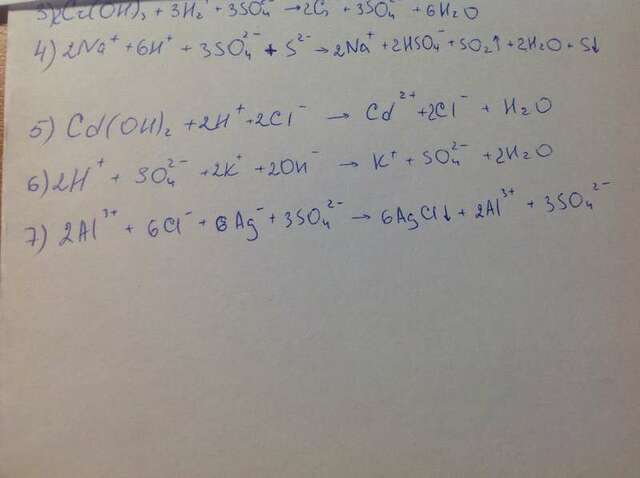 3) 2Cr(OH)₃ + 3H₂⁺ + 3SO₄²⁻ → 2Cr + 3SO₄²⁻ + 6H₂O
4) 2Na⁺ + 6H⁺ + 3SO₄²⁻ + S²⁻ → 2Na⁺ + 2HSO₄⁻ + SO₂↑ + 2H₂O + S↓
5) Cd(OH)₂ + 2H⁺ + 2Cl⁻ → Cd²⁺ + 2Cl⁻ + H₂O
6) 2H⁺ + SO₄²⁻ + 2K⁺ + 2OH⁻ → K⁺ + SO₄²⁻ + 2H₂O
7) 2Al³⁺ + 6Cl⁻ + 6Ag⁻ + 3SO₄²⁻ → 6AgCl↓ + 2Al³⁺ + 3SO₄²⁻